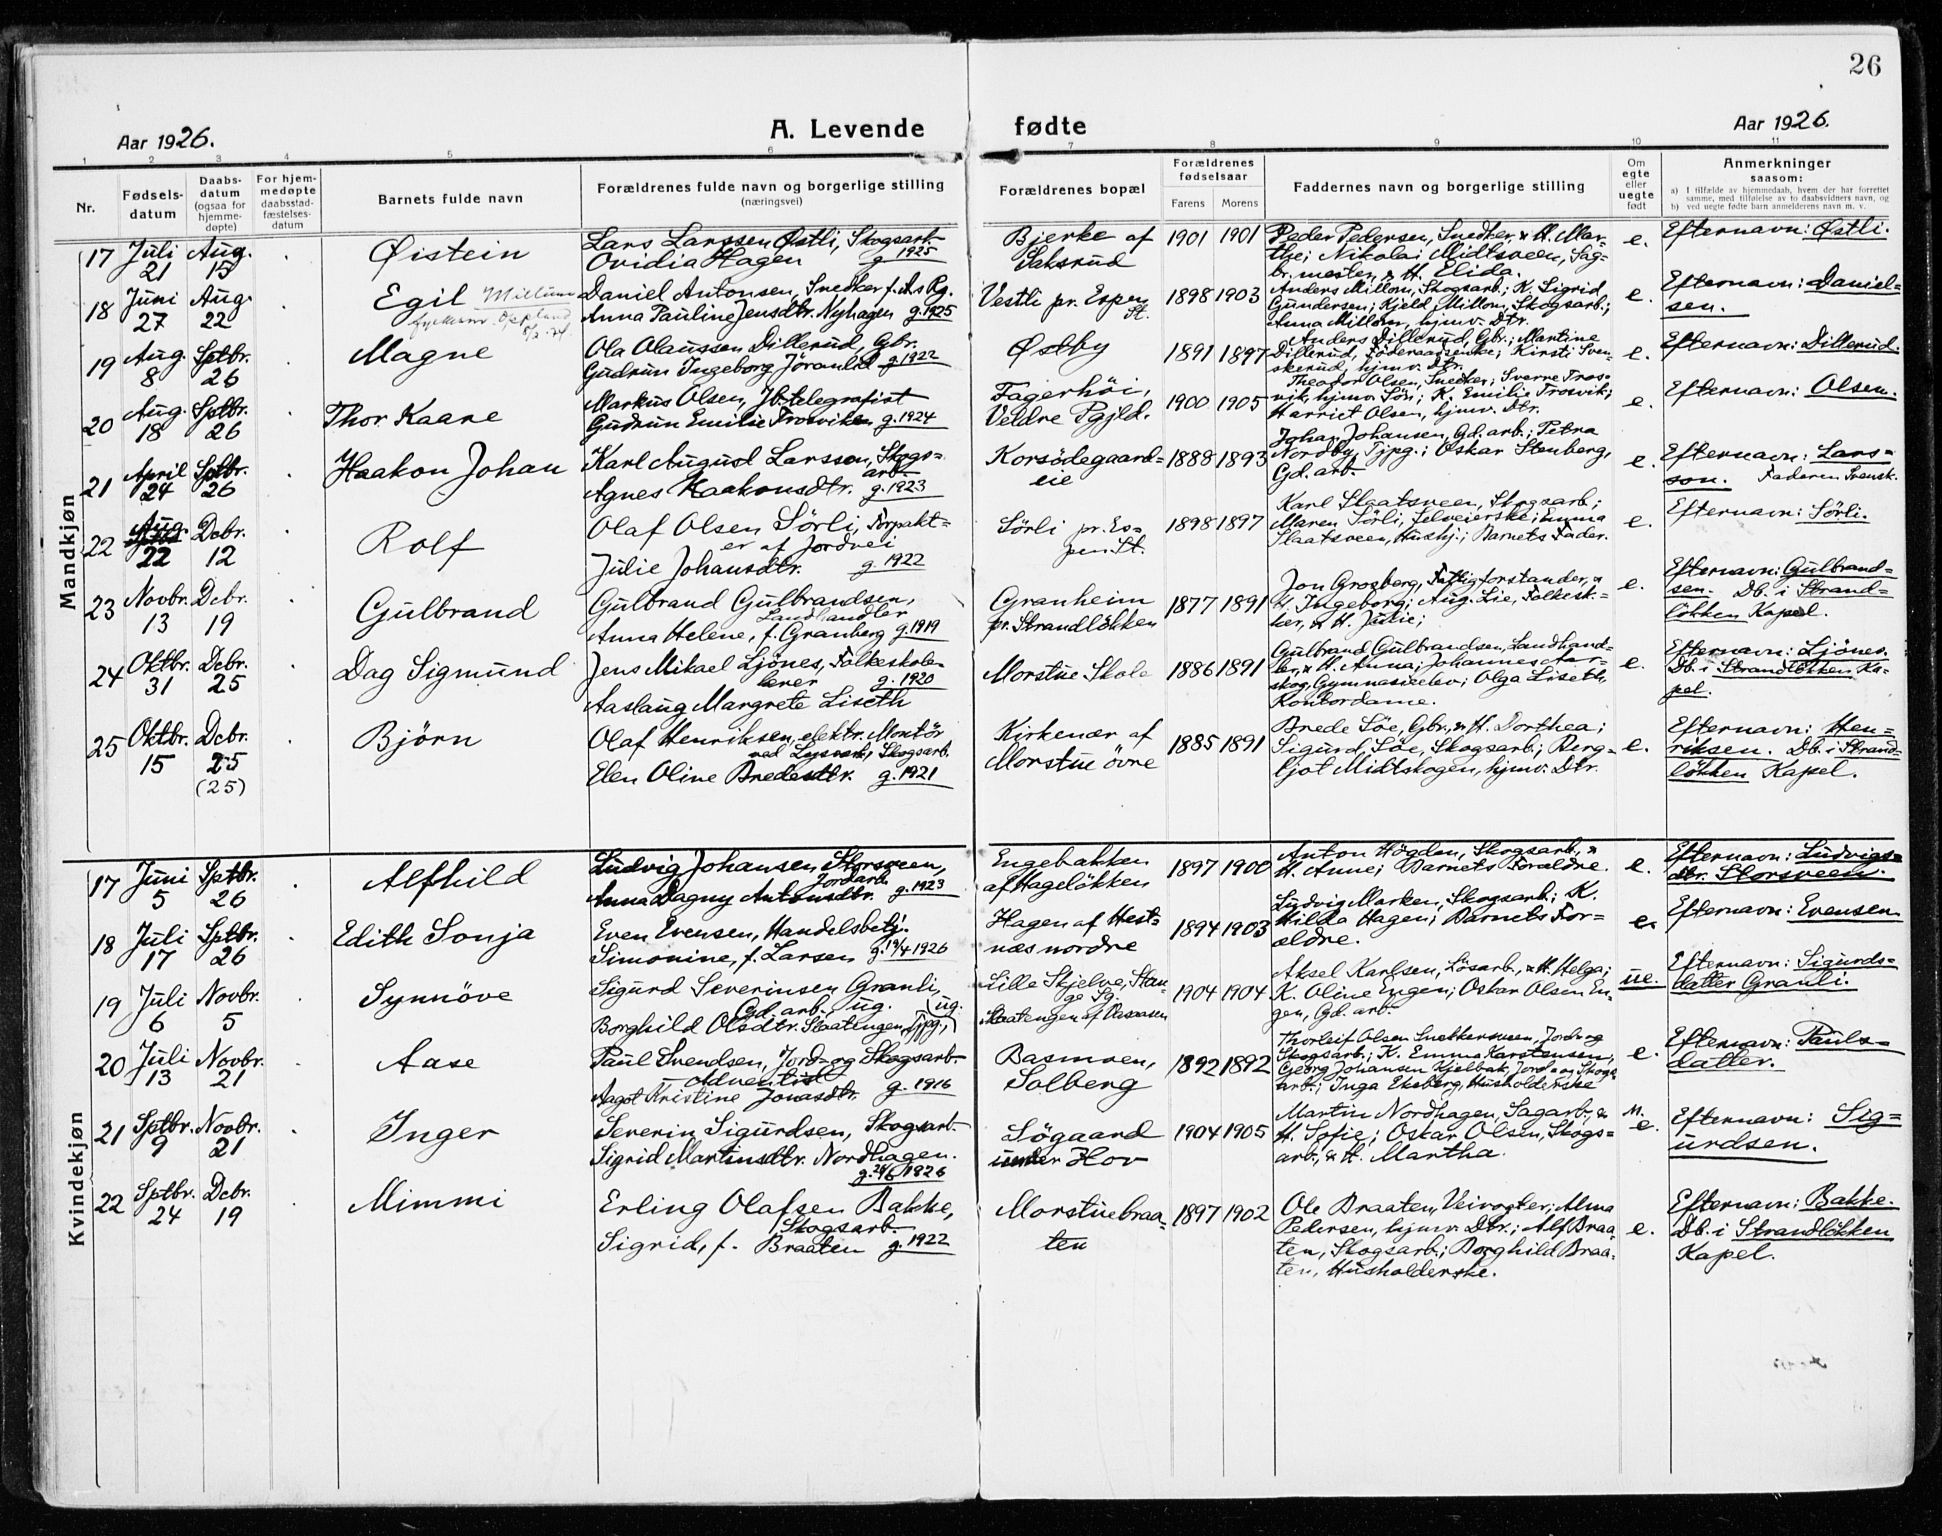 26
Aar 1926.
A. Levende fødte
Aar 1926.
1 2 3 4 5 6 7 8 9 10 11
Nr.
Fødsels-
datum
Daabs-
datum
(ogsaa for
hjemme-
døpte)
For hjem-
medøpte
daabsstad-
fæstelses-
datum
Barnets fulde navn
Forældrenes fulde navn og borgerlige stilling
(næringsvei)
Forældrenes bopæl
Forældrenes
fødselsaar
Farens Morens
Faddernes navn og borgerlige stilling
Om
egte
eller
uegte
født
Anmerkninger
saasom:
a) I tilfælde av hjemmedaab, hvem der har forrettet
samme, med tilføielse av to daabsvidners navn, og
b) ved uegte fødte barn anmelderens navn m. v.
Mandkjøn
17 Juli 21 Aug. 15
Øistein
Lars Larssen Østli, Skogsarb.
Ovidia Hagen g. 1925
Bjerke af
Saksrud
1901 1901
Peder Pedersen, Snedker, & H. Mar-
the; Nikolai Midtsveen, Sag-
br.mester, & H. Elida.
e.
Efternavn: Østli.
18 Juni 27 Aug. 22
Egil Millum
Oppland
Daniel Antonsen, Snedker f. As Pg.
Anna Pauline Jensdtr. Nyhagen g. 1925
Vestli pr. Espen
St.
1898 1903
Anders Millom, Skogsarb.; K. Sigrid
Gundersen; Kjeld Millom, Skogsarb.;
Anna Millom, hjmv. Dtr.
e.
Efternavn: Daniel-
sen.
19 Aug. 8 Sptbr. 26
Magne
Ola Olaussen Dillerud, Gbr.
Gudrun Ingeborg Jöranlid g. 1922
Østby
1891 1897
Anders Dillerud, Gbr.; Martine
Dillerud, Föderaadsenke; Kirsti Sven-
skerud, hjmv. Dtr.
e.
Efternavn: Dillerud.
20 Aug. 18 Sptbr. 26
Thor Kaare
Markus Olsen, Jb.telegrafist
Gudrun Emilie Trosviken g. 1924
Fagerhöi,
Veldre Pgjld.
1900 1905
Theodor Olsen, Snedker; Sverre Tros-
vik, hjmv. Sön; K. Emilie Trosvik;
Harriet Olsen, hjmv. Dtr.
e.
Efternavn: Olsen.
21 April 24 Sptbr. 26
Haakon Johan
Karl August Larsson, Skogs-
arb.
Agnes Haakonsdtr. g. 1923
Korsödegaard-
eie
1888 1893
Johan Johansen, Gd. arb.; Petra
Nordby, Tjpg.; Oskar Stenberg,
Gd. arb.
e.
Efternavn: Lars-
son. Faderen Svensk.
22 Aug. 22 Debr. 12
Rolf
Olaf Olsen Sörli, Forpakt-
er af Jordvei
Julie Johansdtr. g. 1922
Sörli pr. Es-
pen St.
1898 1897
Karl Slaatsveen, Skogsarb.;
Maren Sörli, Selveierske; Emma
Slaatsveen, Hushj.; Barnets Fader.
e.
Efternavn: Sörli.
23 Novbr. 13 Debr. 19
Gulbrand
Gulbrand Gulbrandsen,
Landhandler
Anna Helene, f. Granberg g. 1919
Granheim
pr. Strandlökken
1877 1891
Jon Grosberg, Fattigforstander, &
H. Ingeborg; Aug. Lie, Falkisk-
ker, & H. Julie;
e.
Efternavn: Gulbrand-
sen. Db. i Strand-
lökken Kapel.
24 Oktbr. 31 Debr. 25
Dag Sigmund
Jens Mikael Ljönes, Folkeskole-
lærer g. 1920
Aaslaug Margrete Liseth
Morstue Skole
1886 1891
Gulbrand Gulbrandsen, Landhand-
ler, & H. Anna; Johannes Aar-
skog, Gymnasieelev; Olga Liseth,
Kontordame.
e.
Efternavn: Ljönes.
Db. i Strandlökken Ka-
pel.
25 Oktbr. 15 Debr. 25
(25)
Björn
Olaf Henriksen, elektr. Montör
ved Lysverk, Skogsarb.
Elen Oline Bredesdtr. g. 1921
Kirkenær af
Morstue övre
1885 1891
Brede Söe, Gbr., & H. Dorthea;
Sigurd Söe, Skogsarb.; Berg-
ljot Midtskogen, hjmv. Dtr.
e.
Efternavn: Hen-
riksen. Db. i Strand-
lökken Kapel.
Kvindekjøn
17 Juni 5 Sptbr. 26
Alfhild
Ludvig Johansen Storsveen,
Jordarb.
Anna Dagny Antonsdtr. g. 1923
Engebakken
af Hagelökken
1897 1900
Anton Högden, Skogsarb., &
H. Anne; Barnets Forældre.
e.
Efternavn: Ludvigs-
dtr. Storsveen.
18 Juli 17 Sptbr. 26
Edith Sonja
Even Evensen, Handelsbetj.
Simonine, f. Larsen g. 19/4 1926
Hagen af Hest-
næs nordre
1894 1903
Ludvig Marken, Skogsarb.; K.
Hilda Hagen; Barnets For-
ældre.
e.
Efternavn: Evensen
19 Juli 6 Novbr. 5
Synnöve
Sigurd Severinsen Granli,
Gd. arb. ug.
Borghild Olsdtr. Slaatengen, Tjpg., (ug.)
Lille Skjelve, Stan-
ge Sg.
Slaatengen af
1904 1904
Aksel Karlsen, Lösarb., & H. Helga;
K. Oline Engen; Oskar Olsen En-
gen, Gd. arb.
ue.
Efternavn: Sigurds-
datter Granli.
20 Juli 13 Novbr. 21
Aase
Paul Svendsen, Jord- og Skogsarb.
Adventist
Aagot Kristine Jonasdtr. g. 1916
Basmoen,
Solberg
1892 1892
Thorleif Olsen Snekkersveen, Jord- og
Skogsarb.; K. Emma Karstensen;
Georg Johansen Kjelbak, Jord- og Skogs-
arb.; Inga Ekeberg, Husholderske
e.
Efternavn: Pauls-
datter.
21 Sptbr. 9 Novbr. 21
Inger
Severin Sigurdsen, Skogsarb.
Sigrid Martinsdtr. Nordhagen.
g. 26/6 1926
Sögaard
under Hov
1904 1905
Martin Nordhagen, Sagarb., &
H. Sofie; Oskar Olsen, Skogs-
arb., & H. Martha.
e.
Efternavn: Sig-
urdsen.
22 Sptbr. 24 Debr. 19
Mimmi
Erling Olafsen Bakke,
Skogsarb.
Sigrid, f. Braaten g. 1922
Morstuebraa-
ten
1897 1902
Ole Braaten, Veivogter; Alma
Pedersen, hjmv. Dtr.; Alf Braa-
ten, Skogsarb.; Borghild Braa-
ten, Husholderske.
e.
Efternavn: Bakke.
Db. i Strandlökken
Kapel.